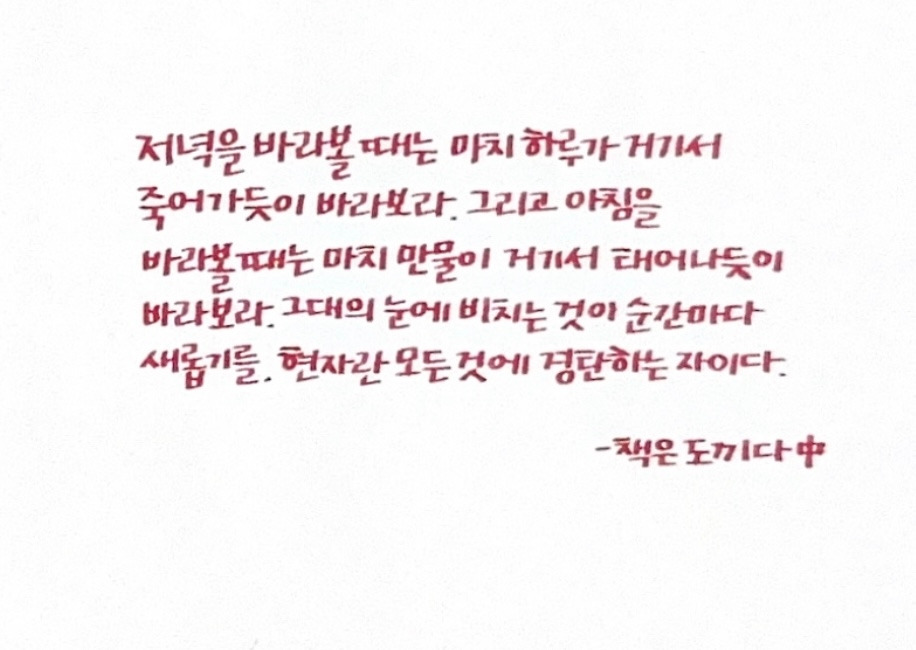 저녁을 바라볼 때는 마치 하루가 거기서
죽어가듯이 바라보라. 그리고 아침을
바라볼 때는 마치 만물이 거기서 태어나듯이
바라보라. 그대의 눈에 비치는 것이 순간마다
새롭기를. 현자란 모든 것에 경탄하는 자이다.
-책은 도끼다 中